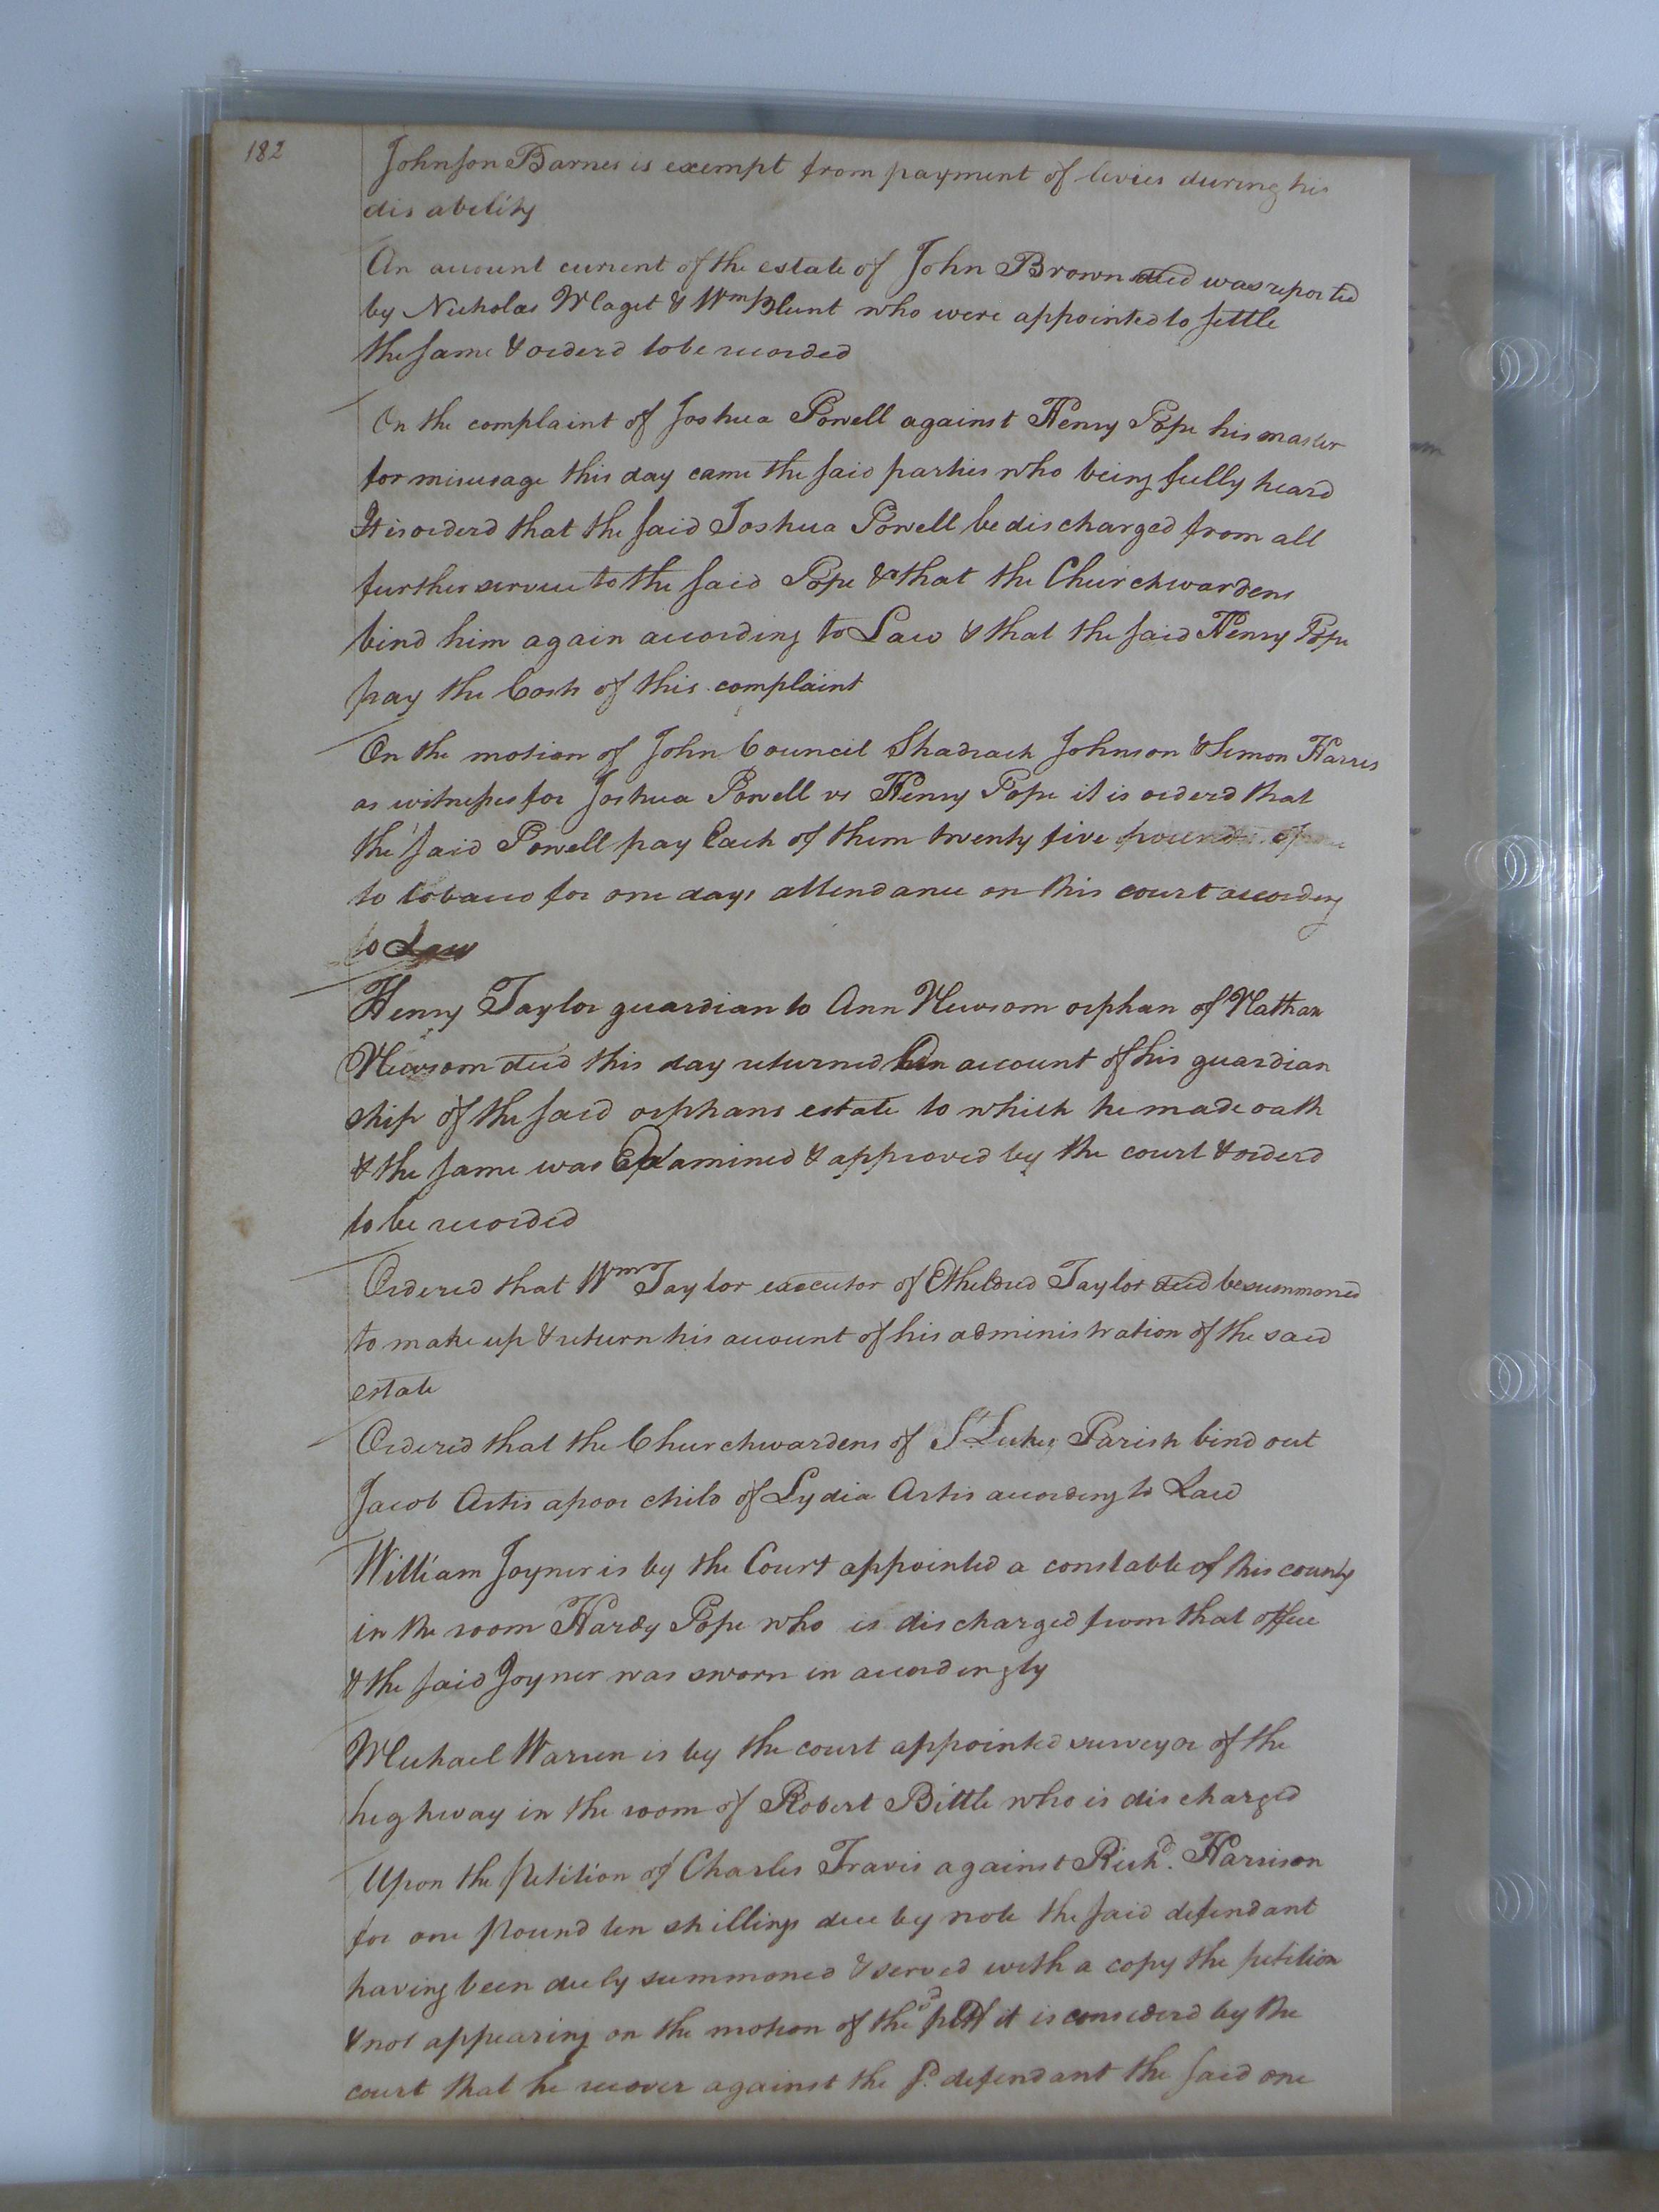 182
Johnson Barnes is exempt from payment of levies during his
disability
An account current of the estate of John Brown decd was reported
by Nicholas Maget & Wm Blunt who were appointed to settle
the same & orderd to be recorded
On the complaint of Joshua Powell against Henry Pope his master
for misusage this day came the said parties who being fully heard
It is orderd that the said Joshua Powell be discharged from all
further service to the said Pope & that the Churchwardens
bind him again according to Law & that the said Henry Pope
pay the Costs of this complaint
On the motion of John Council Shadrach Johnson & Simon Harris
as witnesses for Joshua Powell vs Henry Pope it is orderd that
the said Powell pay Each of them twenty five pounds of
to tobacco for one days attendance on this court according
to Law
Henry Taylor guardian to Ann Newsom orphan of Nathan
Newsom decd this day returned an account of his guardian
ship of the said orphans estate to which he made oath
& the same was Examined & approved by the court & orderd
to be recorded
Ordered that Wm Taylor executor of Etheldred Taylor decd be summoned
to make up & return his account of his administration of the said
estate
Ordered that the Churchwardens of St Lukes Parish bind out
Jacob Artis a poor child of Lydia Artis according to Law
William Joyner is by the Court appointed a constable of this county
in the room Hardy Pope who is discharged from that office
& the said Joyner was sworn in accordingly
Michael Warren is by the court appointed surveyor of the
highway in the room of Robert Bittle who is discharged
Upon the Petition of Charles Travis against Richd. Harrison
for one Pound ten shillings due by note the said defendant
having been duly summoned & served with a copy the petition
& not appearing on the motion of the pltf it is considerd by the
court that he recover against the sd. defendant the said one